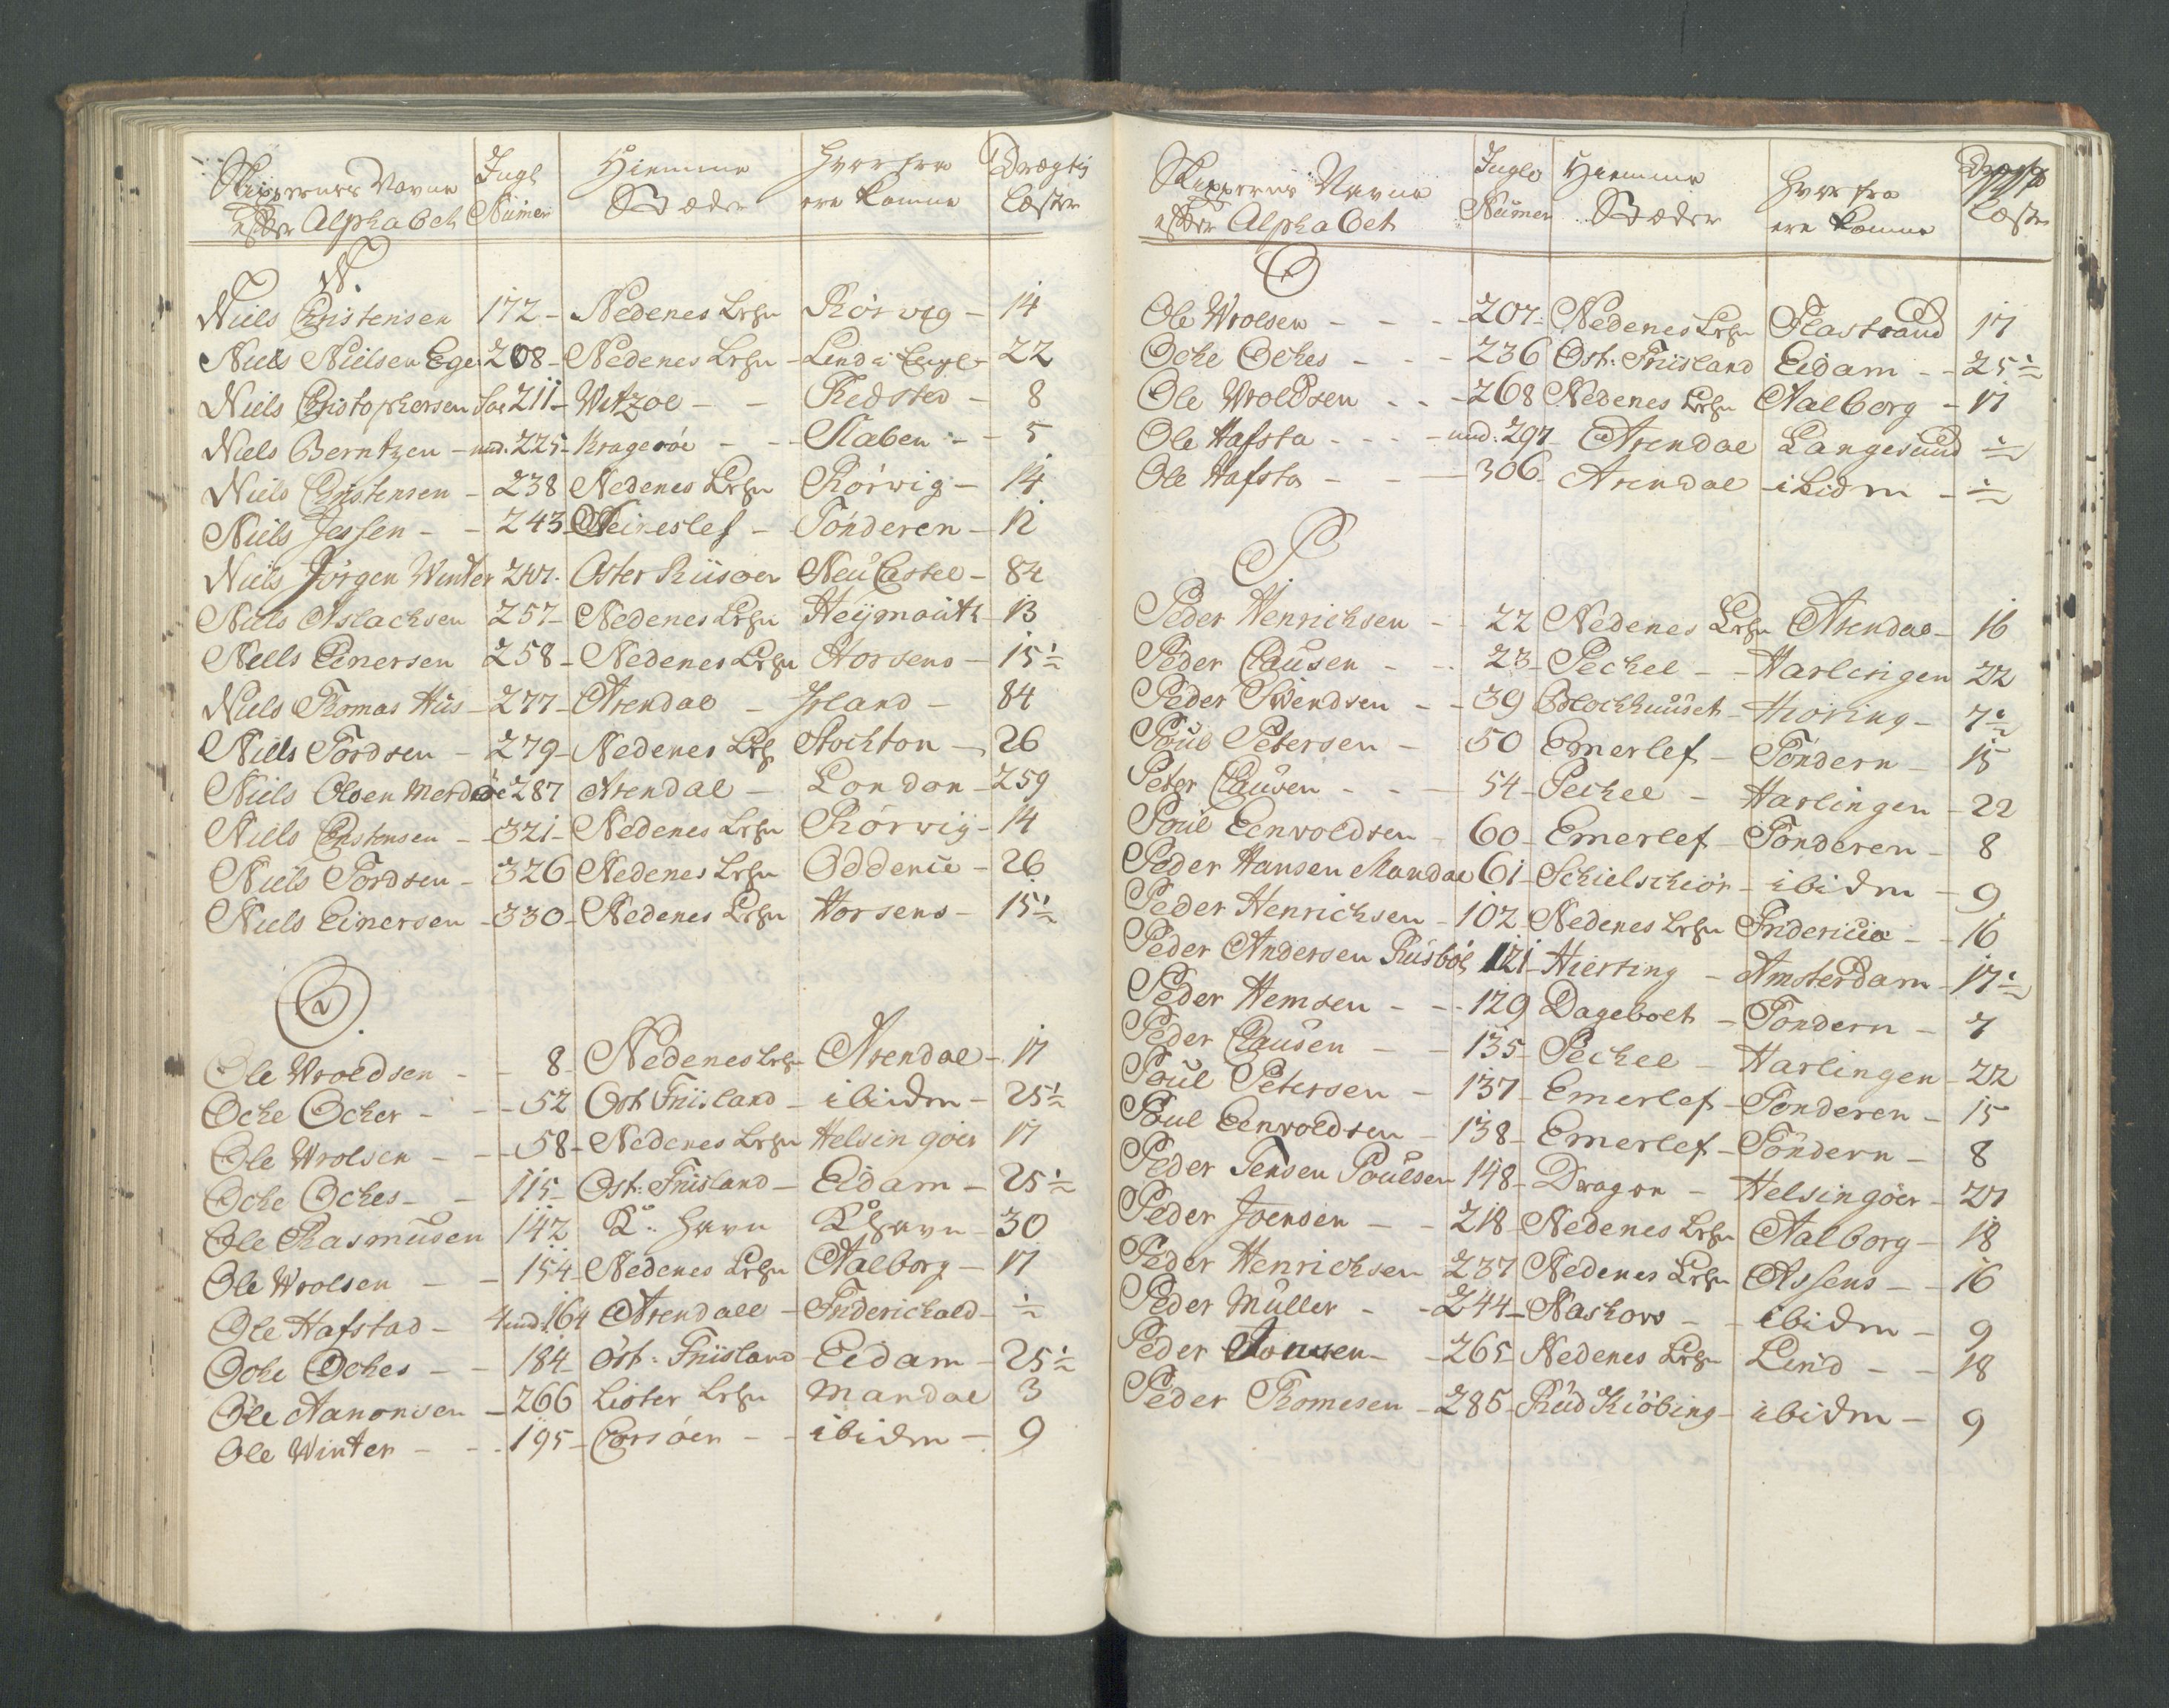 Skippernes Navne Jugl Hiemme Hvorfra Drægtig
efter Alphabeth Numer Stæder ere komne Læster
N.
Niels Christensen 172 - Nedenes Lehn Rörvig - 14
Niels Nielsen Ege 208 - Nedenes Lehn - Lend i Engl - 22
Niels Christophersen 211 - Witzoe - - Redsted - 8
Niels Berntzen - und. 225 - Krageröe - - Staben - - 5
Niels Christensen - 238 Nedenes Lehn Rörwig - 14
Niels Jessen - - 243 - - Tönderen - 12
Niels Jörgen Winter 247. Öster Riisöer NeuCastel - 84
Niels Aslachsen 257 - Nedenes Lehn Heÿmouth - 13
Niells Einersen 258 - Nedenes Lehn Horsens - 15½
Niels Thomas Hus - 277 - Arendal - Irland - 84
Niels Tordsen - 279 - Nedenes Leh Stockton - 26
Niels Olsen Merdöe 287 Arendal - London - 259
Niels Christensen - 321 - Nedenes Lehn Rörvig - 14
Niels Tordsen - 326 Nedenes Lehn Oddenie - 26
Niels Einersen - 330 - Nedenes Lehn Horsens - 15½
O.
Ole Wroldsen - - 8 - Nedenes Lehn Arendal - 17
Ocke Ocker - - - 52 Ost Friisland - ibidm - 25½
Ole Wrolsen - - 58 - Nedenes Lehn Helsingöer 17
Ocke Ockes - - 115 - Ost: Friisland - Eidam - 25½
Ole Rasmusen 142 K: havn Khavn - 30
Ole Wrolsen - - 154 - Nedenes Lehn Aalborg - 17
Ole Hafstad - und 164 Arendall - Friderichald - ½
Ocke Ockes - - 184 Ost: Friisland - Eidam - 25½
Ole Aanonsen - 266 Lister Lehn Mandal 3
Ole Winter - - - 195 - Corsöer - - ibidm - 9
Skippernes Navne Jugls Hiemme Hvor fra Drægtig
efter Alphabet Numer Stæder ere komne Læster
O
Ole Wrolsen - - - 207 - Nedenes Lehn Flastrand 17
Ocke Ockes - - - 236 Ost: Friisland Eidam - - 25½
Ole Wroldsen - - - 268 Nedenes Lehn Aalborg - 17
Ole Hafsta - - - und: 297 - Arendal Langesund ½
Ole Hafsta - - - 306 - Arendal - ibidm - ½
P
Peder Henrichsen - - 22 Nedenes Lehn Arendal - 16
Peder Clausen - - 23 - Peckel - - Harlingen 22
Peder Swendsen - - 39 Blockhuuset - Hiöring - 7½
Poul Petersen - 50 Emerlef - Töndern - 15
Peter Clausen - - - 54 - Peckel - Harlingen - 22
Poul Eenvoldsen - 60 - Emerlef - Tönderen - 8
Peder Hansen Mandal 61 - Schielschiör - ibidm - 9
Peder Henrichsen - 102 Nedenes Lehn Fridericia - - 16
Peder Andersen Riisböl 121 - Hierting - Amsterdam - 17½
Peder Hemsen - - 129 Dageboel - Töndern - 7
Peder Clausen - - 135 - Peckel - Harlingen - 22
Poul Petersen - 137 - Emerlef - Tonderen - 15
Poul Eenvoldsen - 138 - Emerlef - Töndern - 8
Peder Jensen Poulsen 148 - Dragor - Helsingöer - 27
Peder Joensen - - 218 - Nedenes Lehn Aalborg - 18
Peder Henrichsen 237 Nedenes Lehn Assens - - 16
Peder Müller - - 244 - Naskow - - ibidm - 9
Peder - 265 - Nedenes Lehn Lend - - 18
Peder Thomesen - 285 - Rud Kiöbing - ibidm - 9